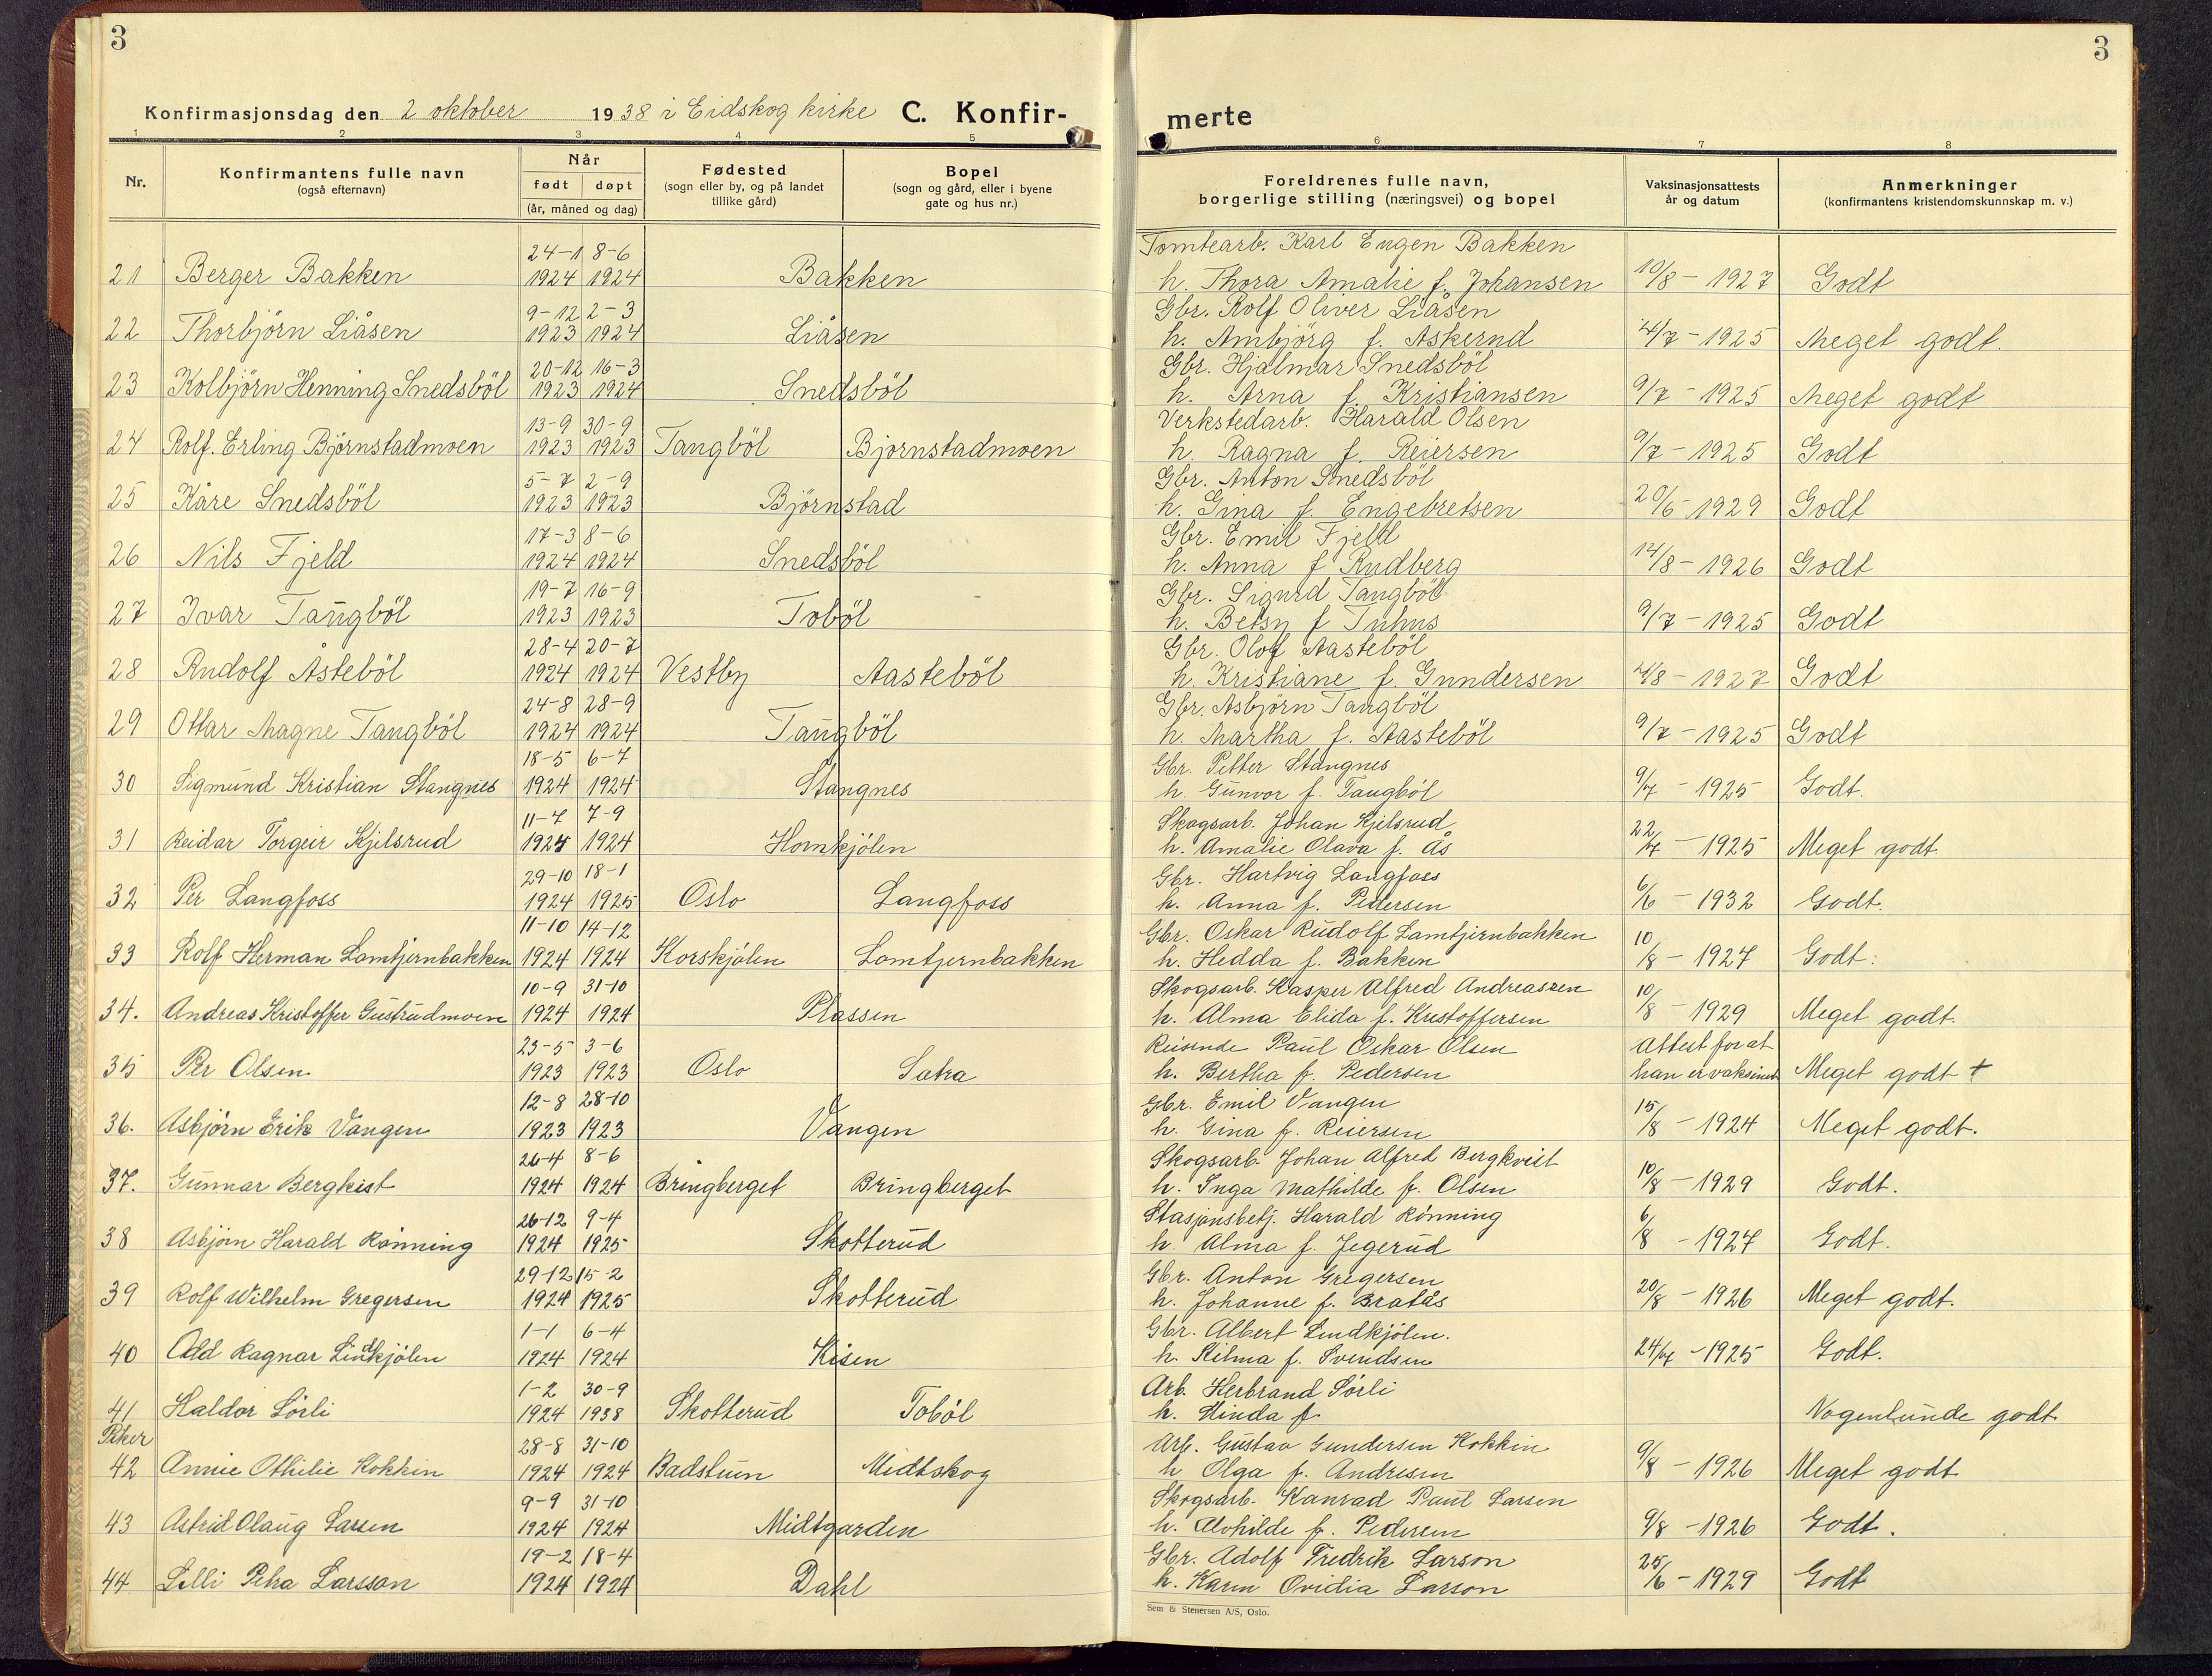 3
Konfirmasjonsdag den 2 oktober 1938 i Eidskog kirke C. Konfir-
1 2 3 4 5
Nr. Konfirmantens fulle navn (også efternavn) Når født døpt (år, måned og dag) Fødested (sogn eller by, og på landet tillike gård) Bopel (sogn og gård, eller i byene gate og hus nr.)
24-1 8-6
21 Berger Bakken 1924 1924 Bakken
9-12 2-3
22 Thorbjörn Liåsen 1923 1924 Liåsen
20-12 16-3
23 Kolbjörn Henning Snedsböl 1923 1924 Snedsböl
13-9 30-9
24 Rolf. Erling Björnstadmoen 1923 1923 Tangböl Bjornstadmoen
5-7 2-9
25 Kåre Snedsböl 1923 1923 Björnstad
17-3 8-6
26 Nils Fjeld 1924 1924 Snedsböl
19-7 16-9
27 Ivar Tangböl 1923 1923 Toböl
28-4 20-7
28 Rudolf Åsteböl 1924 1924 Vestby Aasteböl
24-8 28-9
29 Ottar Magne Tangböl 1924 1924 Tangböl
18-5 6-7
30 Sigmund Kristian Stangnes 1924 1924 Stangnes
11-7 7-9
31 Reidar Torgeir Kjelsrud 1924 1924 Hornkjölen
29-10 18-1
32 Per Langfoss 1924 1925 Oslo Langfoss
11-10 14-12
33 Rolf Herman Lomtjernbakken 1924 1924 Korskjölen Lomtjernbakken
10-9 31-10
34. Andreas Kristoffer Gustrudmoen 1924 1924 Plassen
23-5 3-6
35 Per Olsen 1923 1923 Oslo Satra
12-8 28-10
36. Asbjörn Erik Vangen 1923 1923 Vangen
26-4 8-6
37. Gunnar Bergkist 1924 1924 Bringberget Bringberget
26-12 9-4
38 Asbjörn Harald Rönning 1924 1925 Skotterud
29-12 15-2
39 Rolf Wilhelm Gregersen 1924 1925 Skotterud
1-1 6-4
40 Odd Ragnar Lindkjölen 1924 1924 Kisen
1-2 30-9
41 Haldor Sörli 1924 1938 Skotterud Toböl
Piker
28-8 31-10
42 Annie Othilie Kokkin 1924 1924 Badstuen Midtskog
9-9 31-10
43 Astrid Olaug Larsen 1924 1924 Midtgarden
19-2 18-4
44 Lilli Petra Larsson 1924 1924 Dahl
3
merte
6 7 8
Foreldrenes fulle navn, borgerlige stilling (næringsvei) og bopel Vaksinasjonsattests år og datum Anmerkninger (konfirmantens kristendomskunnskap m. v.)
Tomtearb. Karl Eugen Bakken
h. Thora Amalie f. Johansen 10/8 - 1927 Godt
Gbr. Rolf Oliver Liåsen
h. Ambjörg f. Askerud 4/7 - 1925 Meget godt.
Gbr. Hjalmar Snedsböl
h. Arna f. Kristiansen 9/7 - 1925 Meget godt
Verkstedarb. Harald Olsen
h. Ragna f. Reiersen 9/7 - 1925 Godt
Gbr. Anton Snedsböl
h. Gina f. Engebretsen 20/6 - 1929 Godt
Gbr. Emil Fjeld
h. Anna f Rudberg 14/8 - 1926 Godt
Gbr. Sigurd Tangböl
h. Betsy f Tuhus 9/7 - 1925 Godt
Gbr. Olof Aasteböl
h. Kristiane f. Gundersen 4/8 - 1927 Godt
Gbr. Asbjörn Tangböl
h. Martha f. Aasteböl 9/7 - 1925 Godt
Gbr. Petter Stangnes
h. Gunvor f. Tangböl 9/7 - 1925 Godt.
Skogsarb. Johan Kjelsrud
h. Amalie Olava f. Ås 22/7 - 1925 Meget godt.
Gbr. Hartvig Langfoss
h. Anna f. Pedersen 6/6 - 1932 Godt.
Gbr. Oskar Rudolf Lomtjernbakken
h. Hedda f. Bakken 10/8 - 1927 Godt.
Skogsarb. Kasper Alfred Andreassen
h. Alma Elida f. Kristoffersen 10/8 - 1929 Meget godt.
Reisende Paul Oskar Olsen Attest for at
h. Bertha f. Pedersen han er vaksinert Meget godt +
Gbr. Emil Vangen
h. Gina f. Reiersen 15/8 - 1924 Meget godt.
Skogsarb. Johan Alfred Bergkvist
h. Inga Mathilde f. Olsen 10/8 - 1929 Godt.
Stasjonsbetj. Harald Rönning
h. Alma f. Jegerud 6/8 - 1927 Godt.
Gbr. Anton Gregersen
h. Johanne f. Bratås 20/8 - 1926 Meget godt.
Gbr. Albert Lindkjölen.
h. Hilma f. Svendsen 24/7 - 1925 Godt.
Arb. Herbrand Sörli
h. Hinda f. Nogenlunde godt
Arb. Gustav Gundersen Kokkin
h Olga f. Andresen 9/8 - 1926 Meget godt
Skogsarb. Konrad Paul Larsen
h. Alvhilde f. Pedersen 9/8 - 1926 Godt.
Gbr. Adolf Fredrik Larson
h. Karin Ovidia Larson 25/6 - 1929 Godt
Sem & Stenersen A/S, Oslo.